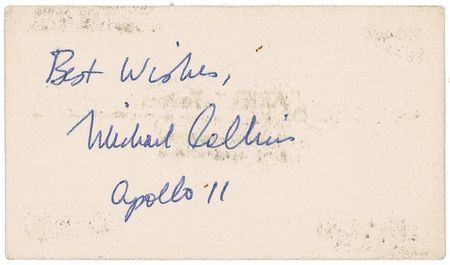 Best Wishes,
Michael Collins
Apollo 11